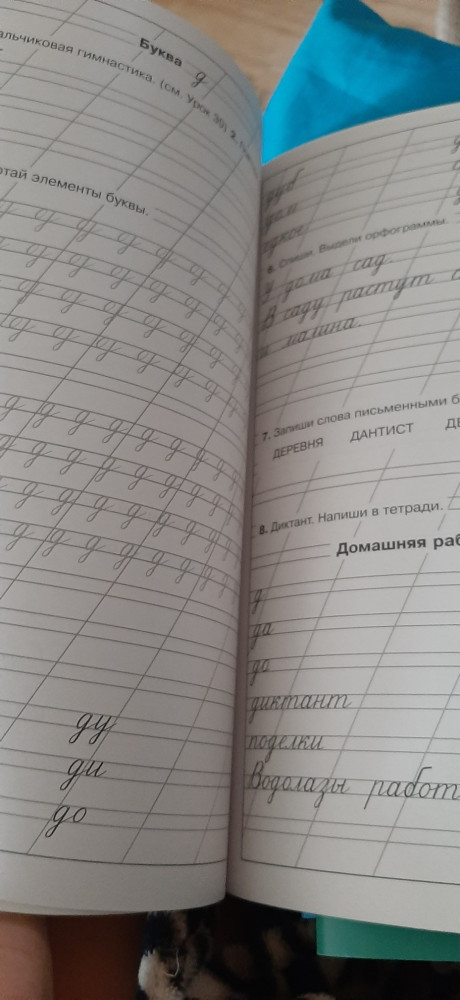 Буква д
альчиковая гимнастика. (см. Урок 30) 2.
отай элементы буквы.
д д д д д д
д д д д д д
д д д д д д
д д д д д д
д д д д д д д
д д д д д д д
д д д д д д д
д д д д д д д
ду
ди
до
дуб
дом
6. Спиши. Выдели орфограммы.
У дома сад.
В саду растут
и малина.
7. Запиши слова письменными б
ДЕРЕВНЯ ДАНТИСТ ДЕ
8. Диктант. Напиши в тетради.
Домашняя раб
д
да
до
диктант
поделки
Водолазы работ